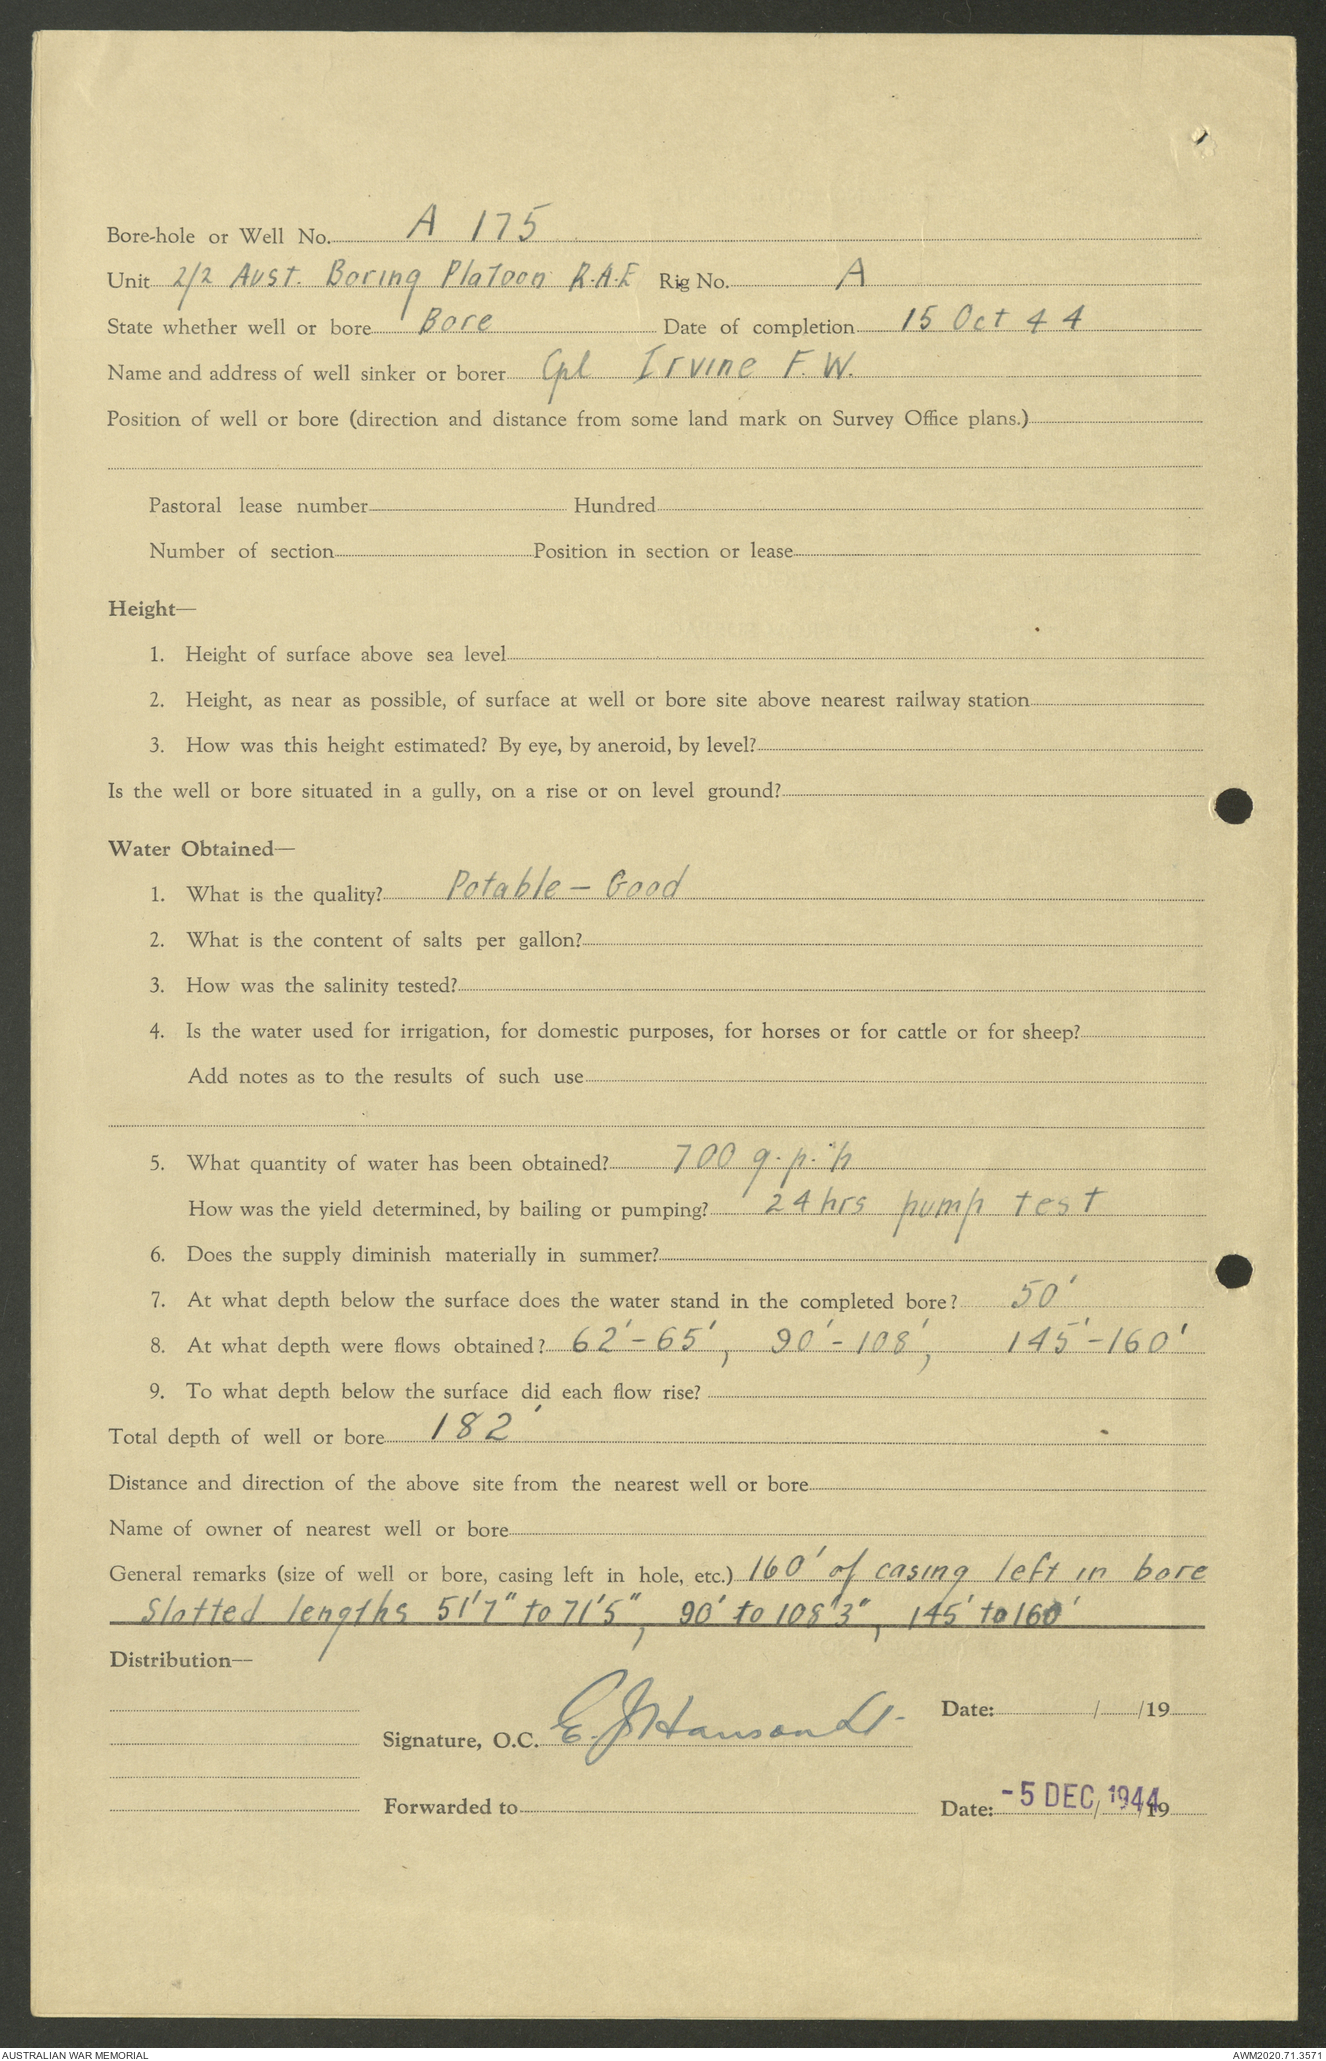 Bore-hole or Well No. A 175
Unit 2/2 Aust. Boring Platoon R.A.E Rig No. A
State whether well or bore Bore Date of completion 15 Oct 44
Name and address of well sinker or borer Cpl Irvine F. W.
Position of well or bore (direction and distance from some land mark on Survey Office plans.)
Pastoral lease number Hundred
Number of section Position in section or lease
Height—
1. Height of surface above sea level
2. Height, as near as possible, of surface at well or bore site above nearest railway station
3. How was this height estimated? By eye, by aneroid, by level?
Is the well or bore situated in a gully, on a rise or on level ground?
Water Obtained—
1. What is the quality? Potable – Good
2. What is the content of salts per gallon?
3. How was the salinity tested?
4. Is the water used for irrigation, for domestic purposes, for horses or for cattle or for sheep?
Add notes as to the results of such use
5. What quantity of water has been obtained? 700 g.p.h
How was the yield determined, by bailing or pumping? 24 hrs pump test
6. Does the supply diminish materially in summer?
7. At what depth below the surface does the water stand in the completed bore? 50'
8. At what depth were flows obtained? 62'-65', 90'-108', 145'-160'
9. To what depth below the surface did each flow rise?
Total depth of well or bore 182'
Distance and direction of the above site from the nearest well or bore
Name of owner of nearest well or bore
General remarks (size of well or bore, casing left in hole, etc.) 160' of casing left in bore
Slotted lengths 51'7" to 71'5", 90' to 108'3", 145' to 160'
Distribution—
Date: / /19
Signature, O.C. E. J. Hanson Lt.
Forwarded to Date: -5 DEC 1944 / /19
AUSTRALIAN WAR MEMORIAL AWM2020.71.3571